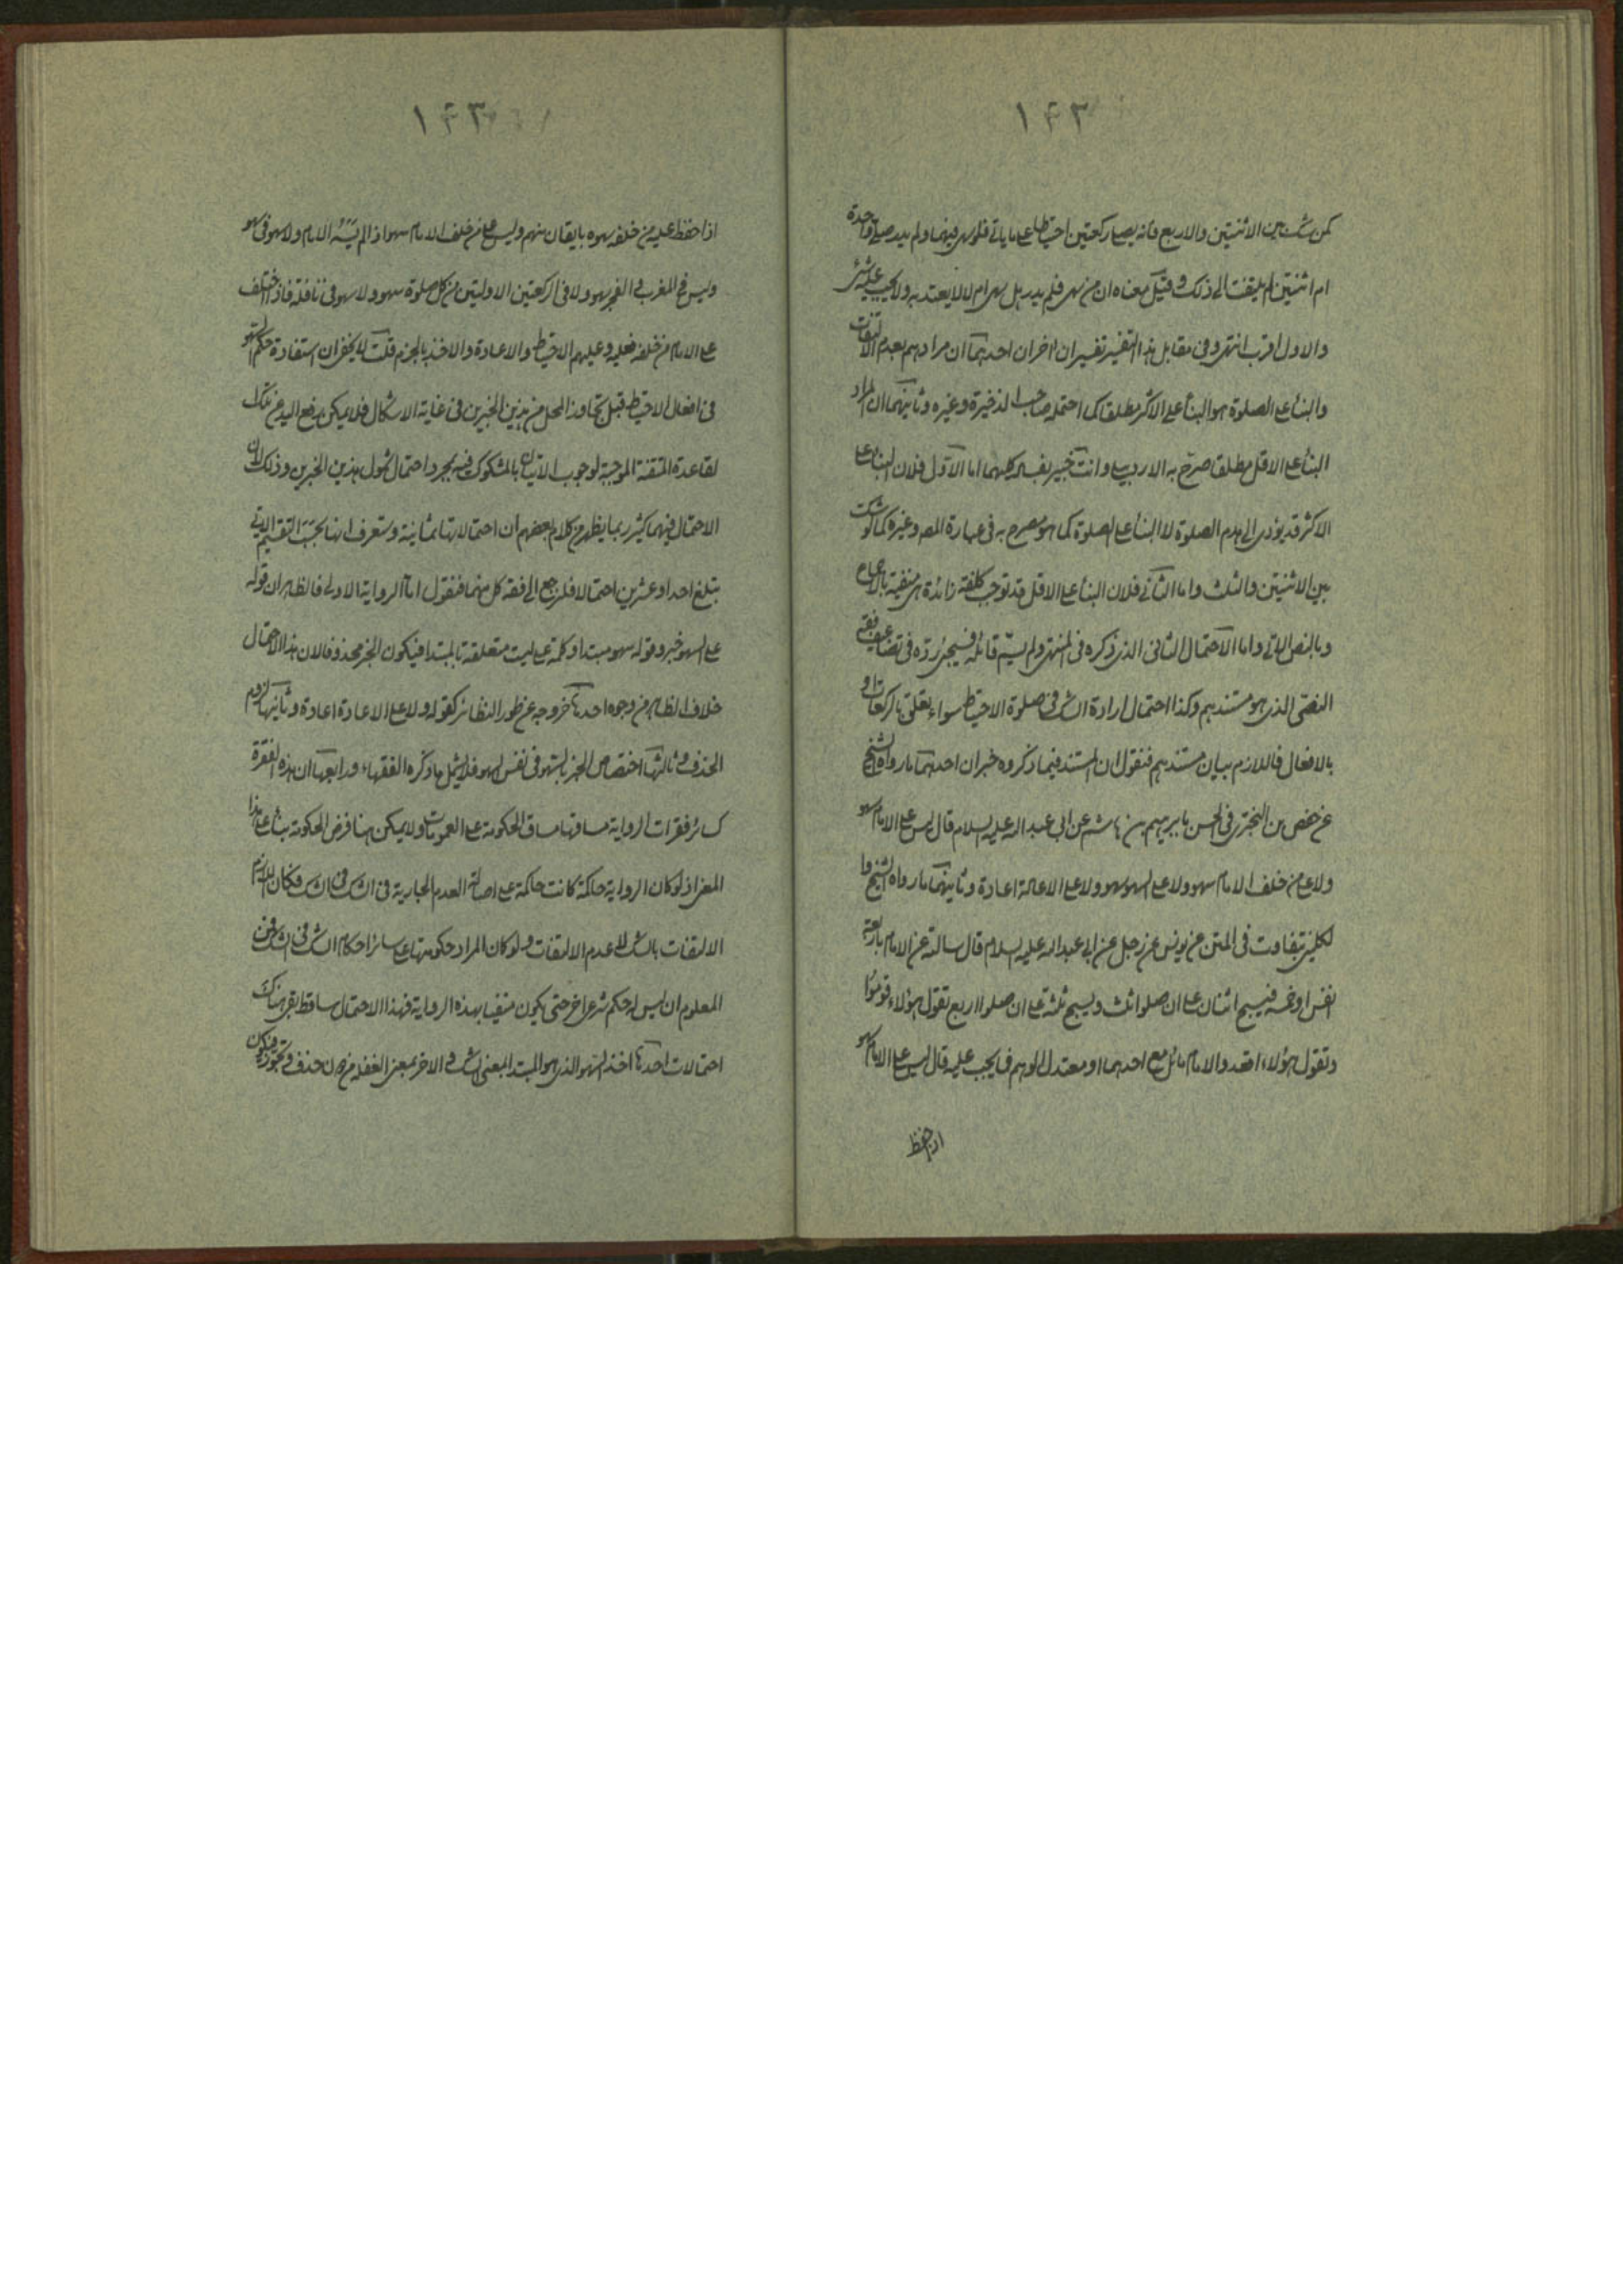 ١٤٣
كمن شك بين الاثنتين والاربع فانه يصلى ركعتين احتياطا على ما ياتى فلو سهى فيهما ولم يدر صلى واحدة
ام اثنتين لم يلتفت الى ذلك وقيل معناه ان من سهى فلم يدر هل سهى ام لا لا يعتد به ولا يجب عليه شئ
والاول اقرب انتهى وفى مقابل هذا التفسير تفسيران اخران احدهما ان مرادهم بعدم الالتفات
والبناء على الصلوة هو البناء على الاكثر مطلقا كما احتمله صاحب الذخيرة وغيره وثانيهما ان المراد
البناء على الاقل مطلقا صرّح به الاردبيلى وانت خبير بفساد كليهما اما الاول فلان البناء على
الاكثر قد يؤدى الى هدم الصلوة لا البناء على الصلوة كما هو مصرح به فى عبارة المص وغيره كما لو شك
بين الاثنتين والثلث واما الثانى فلان البناء على الاقل قد توجب كلفة زائدة هى منفية بالاجماع
وبالنص الاتى واما الاحتمال الثانى الذى ذكره فى المنتهى ولم يسمّ قائله فسيجئ ردّه فى تضاعيف فقه
النص الذى هو مستندهم وكذا احتمال ارادة الشك فى صلوة الاحتياط سواء تعلق بالركعات او
بالافعال فاللازم بيان مستندهم فنقول ان المستند فيما ذكروه خبران احدهما ما رواه الشيخ
عن حفص بن البخترى فى الحسن بابرهيم بن هاشم عن ابى عبد الله عليه السلام قال ليس على الامام سهو
ولا على من خلف الامام سهو ولا على السهو سهو ولا على الاعادة اعادة وثانيهما ما رواه الشيخ وا
لكلينى بتفاوت فى المتن عن يونس عن رجل عن ابى عبد الله عليه السلام قال سالته عن الامام باربعة
انفس او خمسة فيسبح اثنان على ان صلوا ثلث ويسبح ثلثة على ان صلوا اربع تقول هؤلاء قوموا
وتقول هؤلاء اقعدوا والامام مائل مع احدهما او معتدل الوهم فما يجب عليه قال ليس على الامام سهو
اذا حفظ
١٤٣
اذا حفظ عليه من خلفه سهوه بايقان منهم وليس على من خلف الامام سهو اذا لم يسه الامام ولا سهو فى سهو
وليس فى المغرب و الفجر سهو ولا فى الركعتين الاوليتين من كل صلوة سهو ولا سهو فى نافلة فاذا اختلف
على الامام من خلفه فعليه وعليهم الاحتياط والاعادة والاخذ بالجزم قلت لا يخفى ان استفادة حكم السهو
فى افعال الاحتياط قبل تجاوز المحل من هذين الخبرين فى غاية الاشكال فلا يمكن رفع اليد عن تلك
القاعدة المتقنة الموجبة لوجوب الاتيان بالمشكوك فيه بمجرد احتمال شمول هذين الخبرين وذلك لان
الاحتمال فيهما كثير ربما يظهر من كلام بعضهم ان احتمالاتها ثمانية وستعرف انها بحسب التقسيم الاتى
تبلغ احدا وعشرين احتمالا فلنرجع الى فقه كل منهما فنقول اما الرواية الاولى فالظاهر ان قوله
على السهو خبر وقوله سهو مبتدا وكلمة على ليست متعلقة بالمبتدا فيكون الخبر محذوفا لان هذا الاحتمال
خلاف الظاهر من وجوه احدها خروجه عن طور النظائر كقوله ولا على الاعادة اعادة وثانيها لزوم
الحذف وثالثها اختصاص الخبر بالسهو فى نفس السهو فلا يشمل ما ذكره الفقهاء ورابعها ان هذه الفقرة
كسائر فقرات الرواية مساقها مساق الحكومة على العمومات ولا يمكن هنا فرض الحكومة بناء على هذا
المعنى اذ لو كان الرواية حاكمة كانت حاكمة على اصالة العدم الجارية فى الشك فى الشك فكان اللازم
الالتفات بالشك لا عدم الالتفات ولو كان المراد حكومتها على سائر احكام الشك فى الشك فمن
المعلوم ان ليس له حكم شرعى اخر حتى يكون منفيا بهذه الرواية فهذا الاحتمال ساقط بقى هناك
احتمالات احدها اخذ السهو الذى هو المبتدا بمعنى الشك والاخر بمعنى الغفلة من دون حذف وتجوز فيكون